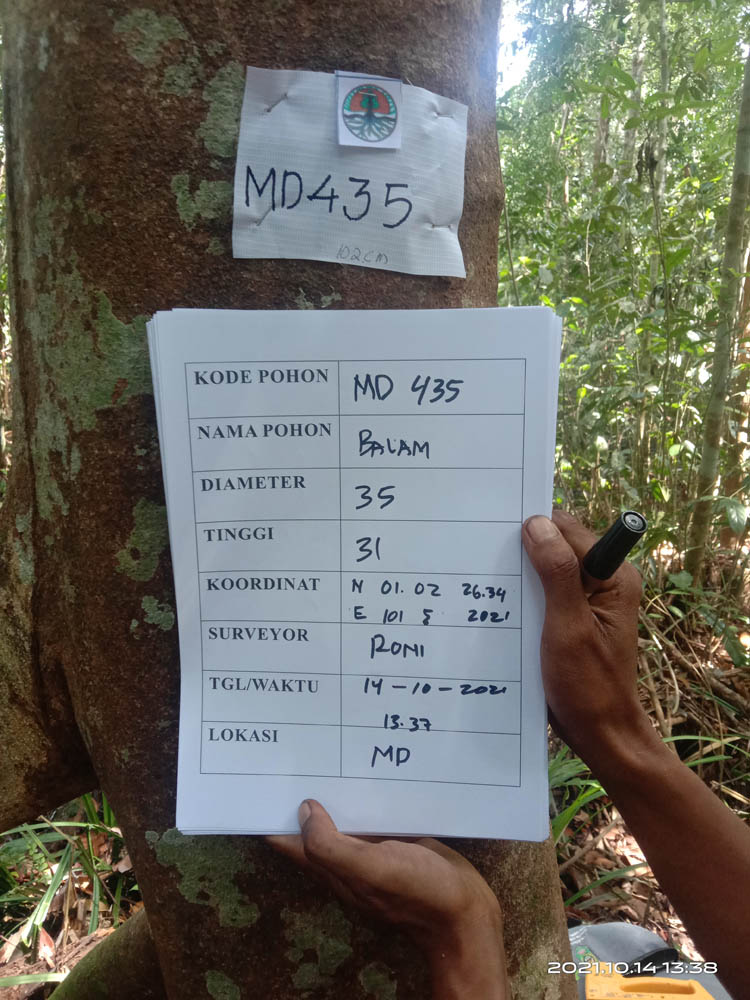 MD435
102cm
KODE POHON MD 435
NAMA POHON BALAM
DIAMETER 35
TINGGI 31
KOORDINAT N 01. 02 26.34
E 101 5 2021
SURVEYOR RONI
TGL/WAKTU 14-10-2021
13.37
LOKASI MD
2021.10.14 13:38